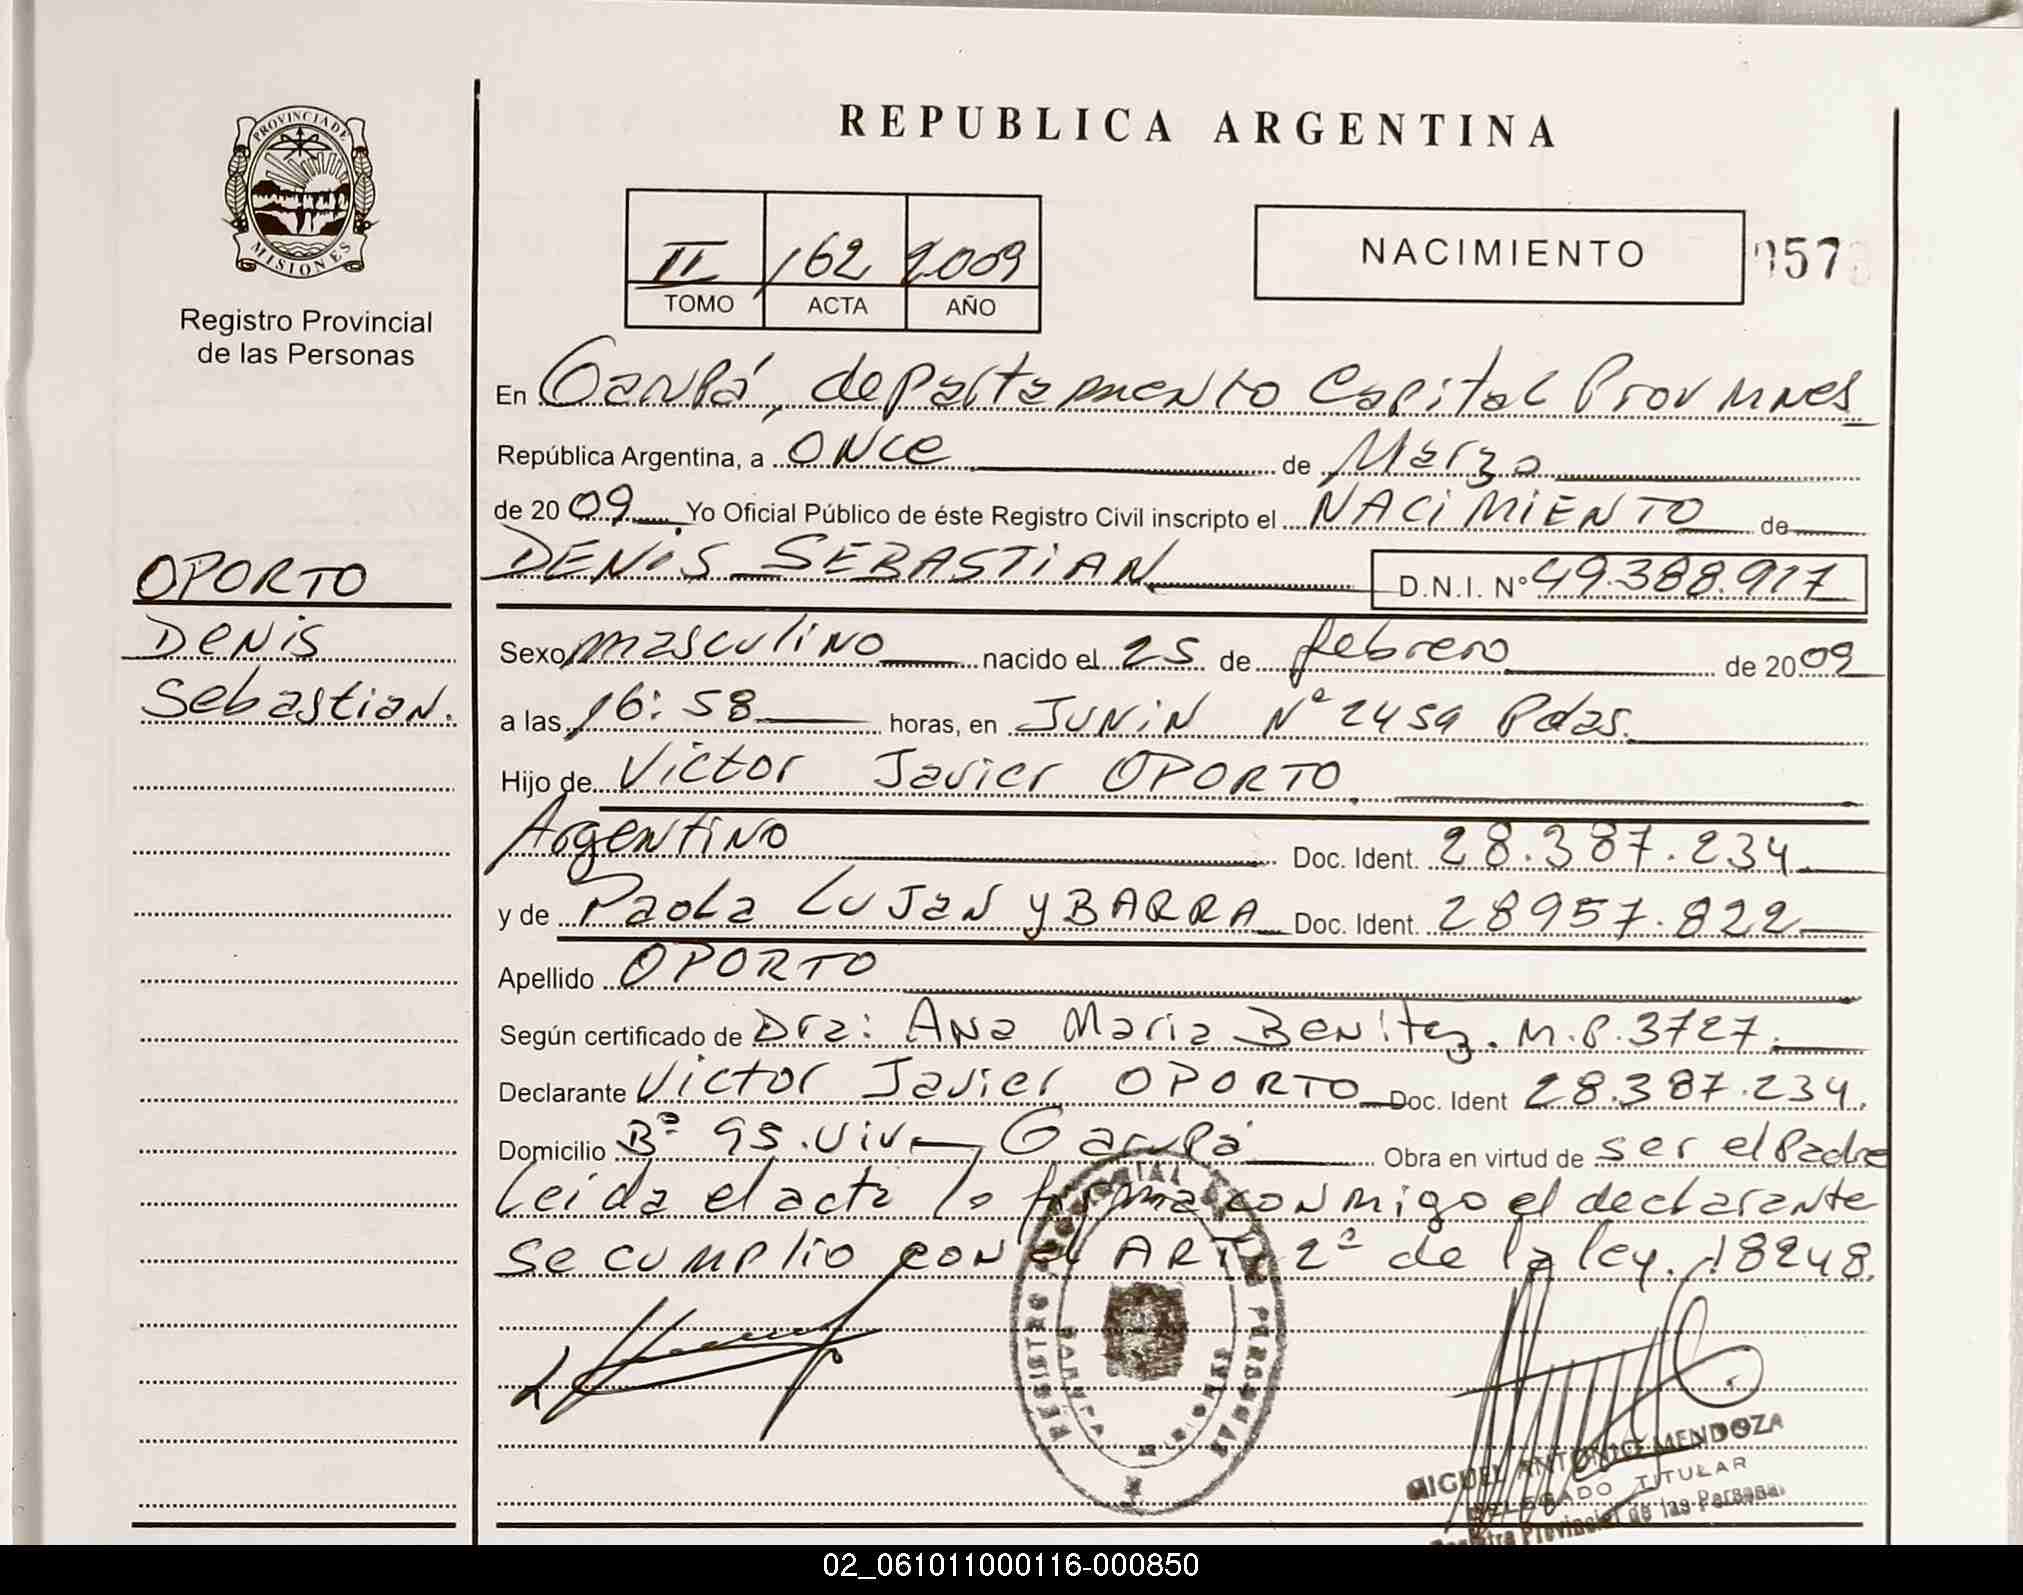 REPUBLICA ARGENTINA
PROVINCIA DE
MISIONES
Registro Provincial
de las Personas
II 162 2009
TOMO ACTA AÑO
NACIMIENTO
057
En Garupá, departamento Capital Prov Mnes
República Argentina, a once de Marzo
de 2009 Yo Oficial Público de éste Registro Civil inscripto el NACIMIENTO de
DENIS SEBASTIAN D.N.I. Nº 49.388.917
OPORTO
Denis
Sebastian.
Sexo masculino nacido el 25 de febrero de 2009
a las 16:58 horas, en JUNIN Nº 2459 Pdas.
Hijo de Victor Javier OPORTO
Argentino Doc. Ident. 28.387.234
y de Paola Lujan YBARRA Doc. Ident. 28957.822
Apellido OPORTO
Según certificado de Dra: Ana Maria Benitez. M.P. 3727.
Declarante Victor Javier OPORTO Doc. Ident 28.387.234.
Domicilio Bº 95.Viv Garupá Obra en virtud de ser el Padre
Leida el acta la firma conmigo el declarante
se cumplio con el ART 2º de la ley. 18248.
REGISTRO PERSONAS
GARUPA MISIONES
MIGUEL ANTONIO MENDOZA
DELEGADO TITULAR
Registro Provincial de las Personas
02_061011000116-000850